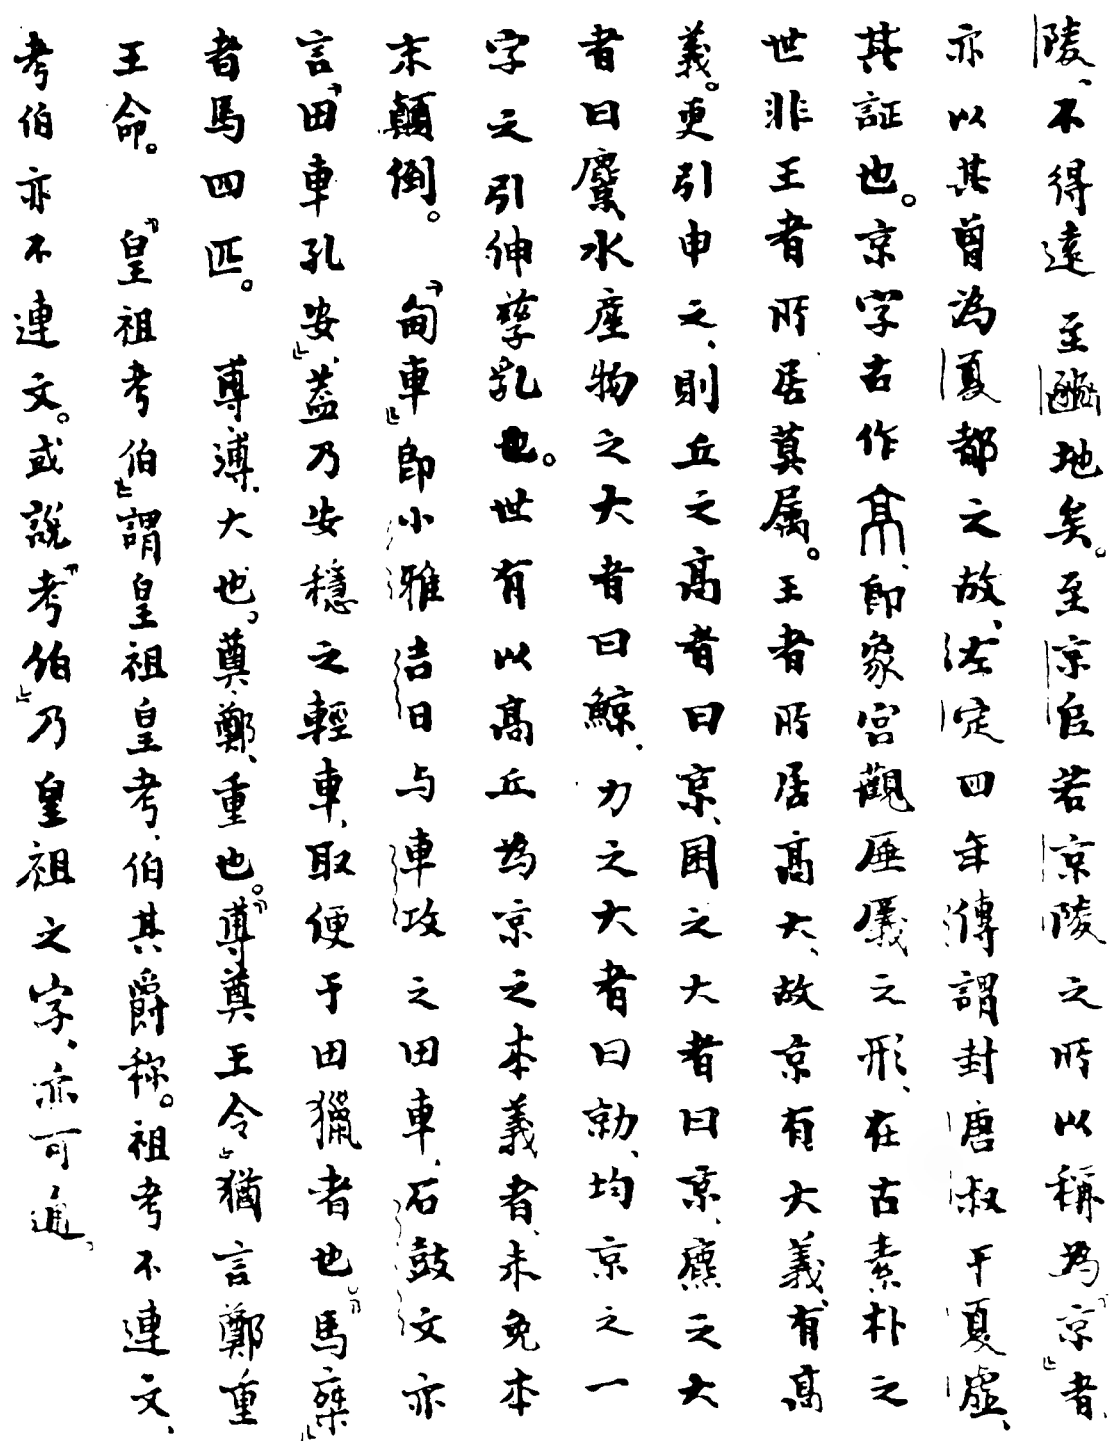 陵、不得遠至𨟻地矣。至京𠂤若京陵之所以稱為「京」者、
亦以其曾為夏都之故、左定四年傳謂封唐叔于夏虛、
其証也。京字古作𩫖、即象宮觀厜㕒之形、在古素朴之
世非王者所居莫属。王者所居高大、故京有大義、有高
義。更引申之、則丘之高者曰京、囷之大者曰京、麃之大
者曰麠、水産物之大者曰鯨、力之大者曰勍、均京之一
字之引伸孳乳也。世有以高丘為京之本義者、未免本
末顛倒。「甸車」即小雅吉日与車攻之田車、石鼓文亦
言「田車孔安」、蓋乃安穩之輕車、取便于田獵者也。「馬㯱」
者馬四匹。尃溥、大也。奠鄭、重也。「尃奠王令」猶言鄭重
王命。「皇祖考伯」謂皇祖皇考、伯其爵称。祖考不連文、
考伯亦不連文。或説「考伯」乃皇祖之字、亦可通、